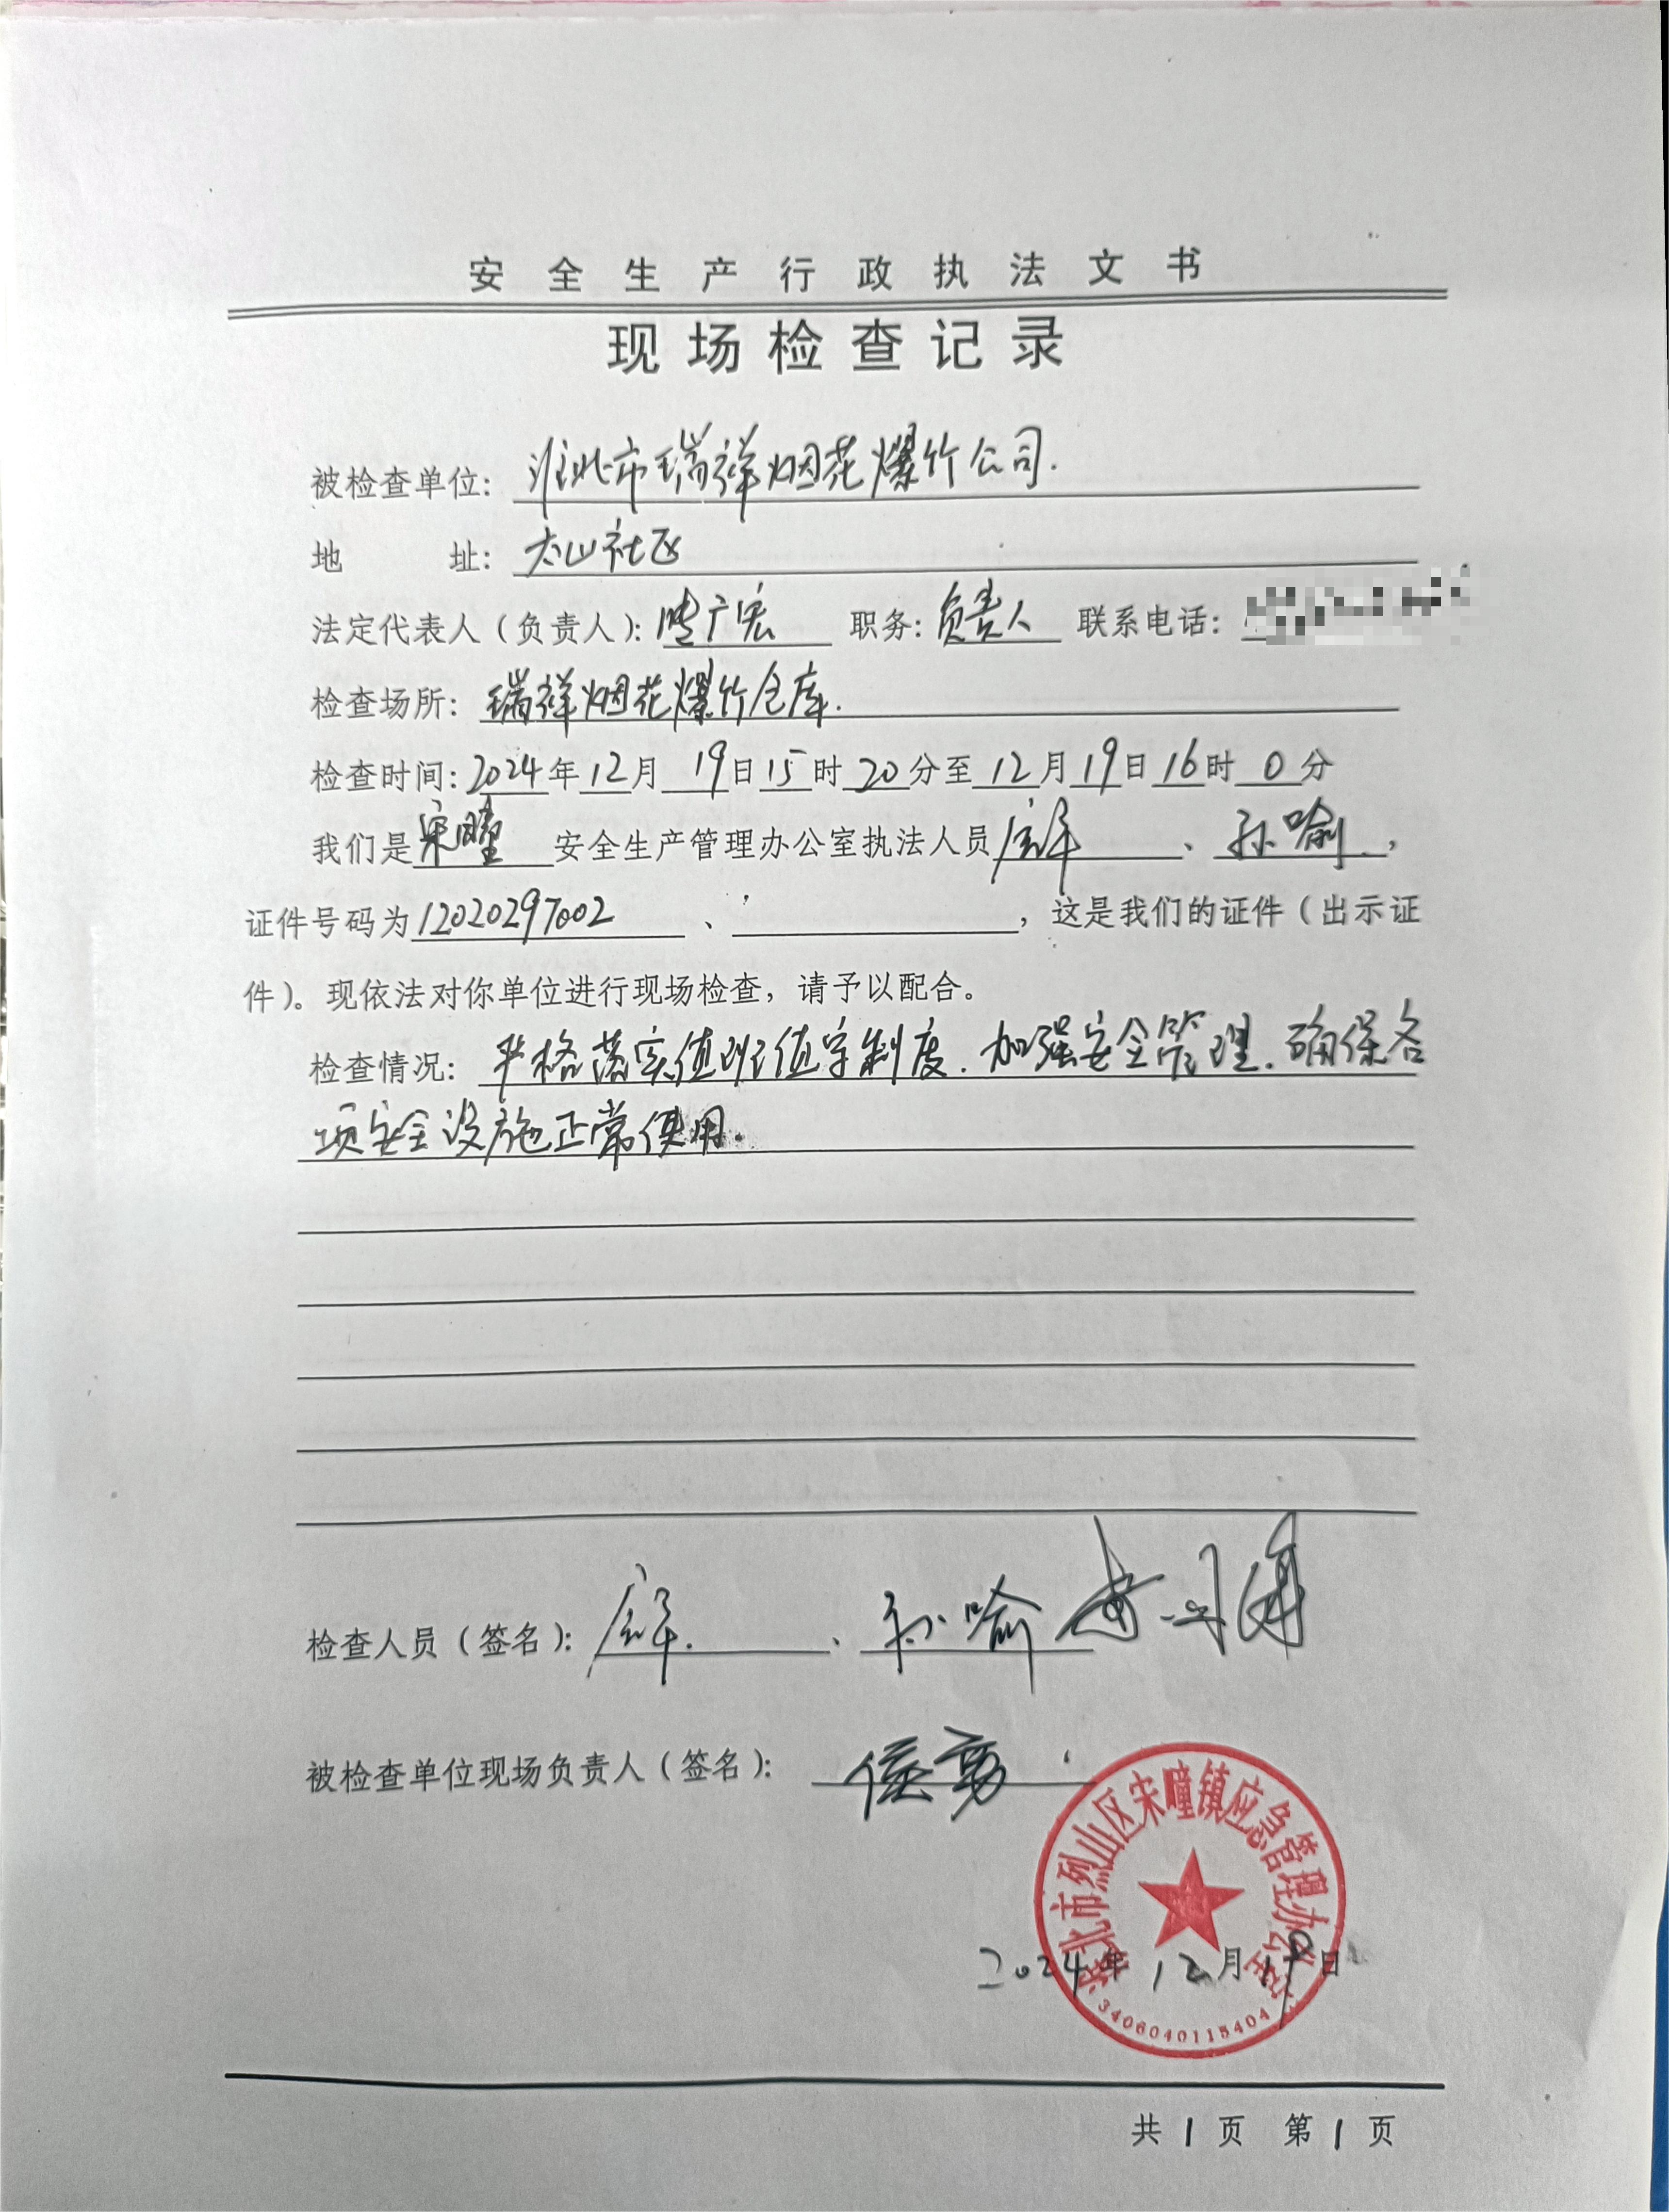 安全生产行政执法文书
现场检查记录
被检查单位：淮北市瑞祥烟花爆竹公司.
地 址：太山社区
法定代表人（负责人）：广宏 职务：负责人 联系电话：
检查场所：瑞祥烟花爆竹仓库.
检查时间：2024年12月19日15时20分至12月19日16时0分
我们是宋疃安全生产管理办公室执法人员、孙喻，
证件号码为12020297002、，这是我们的证件（出示证
件）。现依法对你单位进行现场检查，请予以配合。
检查情况：严格落实值班值守制度.加强安全管理.确保各
项安全设施正常使用.
检查人员（签名）：、孙喻
被检查单位现场负责人（签名）：侯勇
淮北市烈山区宋疃镇应急管理办公室
2024年12月19日
3406040115404
共1页 第1页